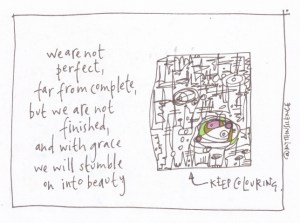 we are not
perfect,
far from complete,
but we are not
finished,
and with grace
we will stumble
on into beauty
KEEP COLOURING